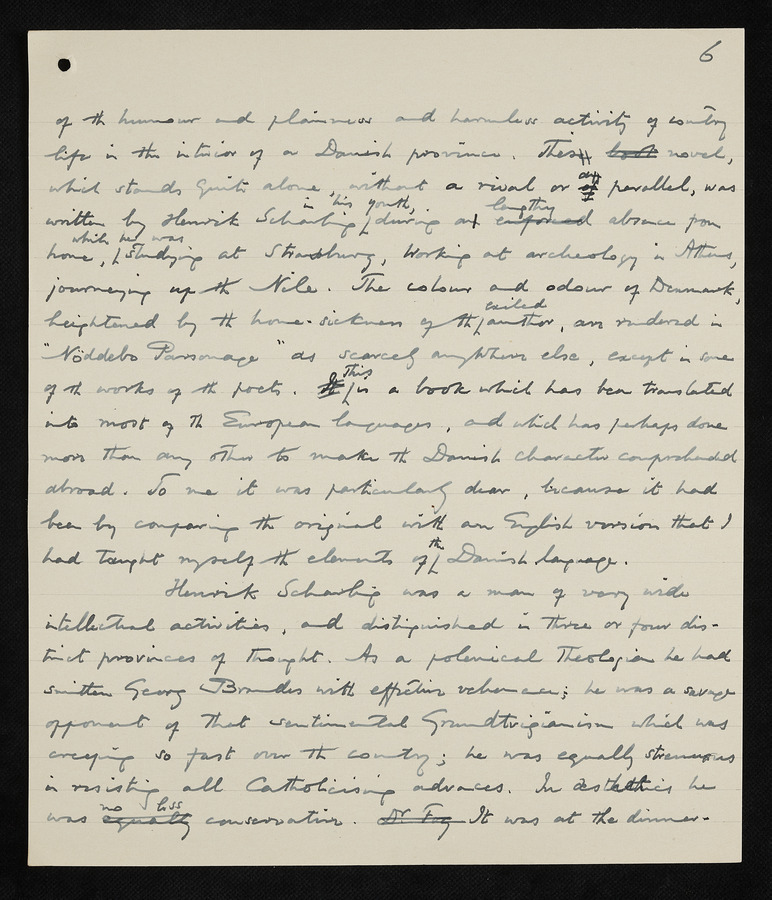 6
of th humour and plainness and harmless activity of country
life in the interior of a Danish province. This book novel,
which stands quite alone, without a rival or of any parallel, was
written by Henrik Scharling, in his youth, during an enforced lengthy absence from
home, which he was studying at Strassburg, working at archeology in Athens,
journeying up th Nile. The colour and odour of Denmark,
heightened by th home-sickness of th exiled author, are rendered in
"Nöddebo Parsonage" as scarcely anywhere else, except in some
of th works of th poets. It This is a book which has been translated
into most of th European languages, and which has perhaps done
more than any other to make th Danish character comprehended
abroad. To me it was particularly dear, because it had
been by comparing th original with an English version that I
had taught myself th elements of the Danish language.
Henrik Scharling was a man of very wide
intellectual activities, and distinguished in three or four dis-
tinct provinces of thought. As a polemical Theologian he had
smitten Georg Brandes with effective vehemence; he was a savage
opponent of that sentimental Grundtvigianism which was
creeping so fast over th country; he was equally strenuous
in resisting all Catholicising advances. In æsthetics he
was equally no less conservative. Dr. Fog It was at the dinner-